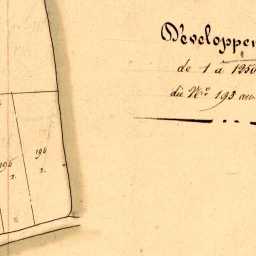 Developpem
de 1 à 1250
du N.º 193 au
196
2.
196
2.